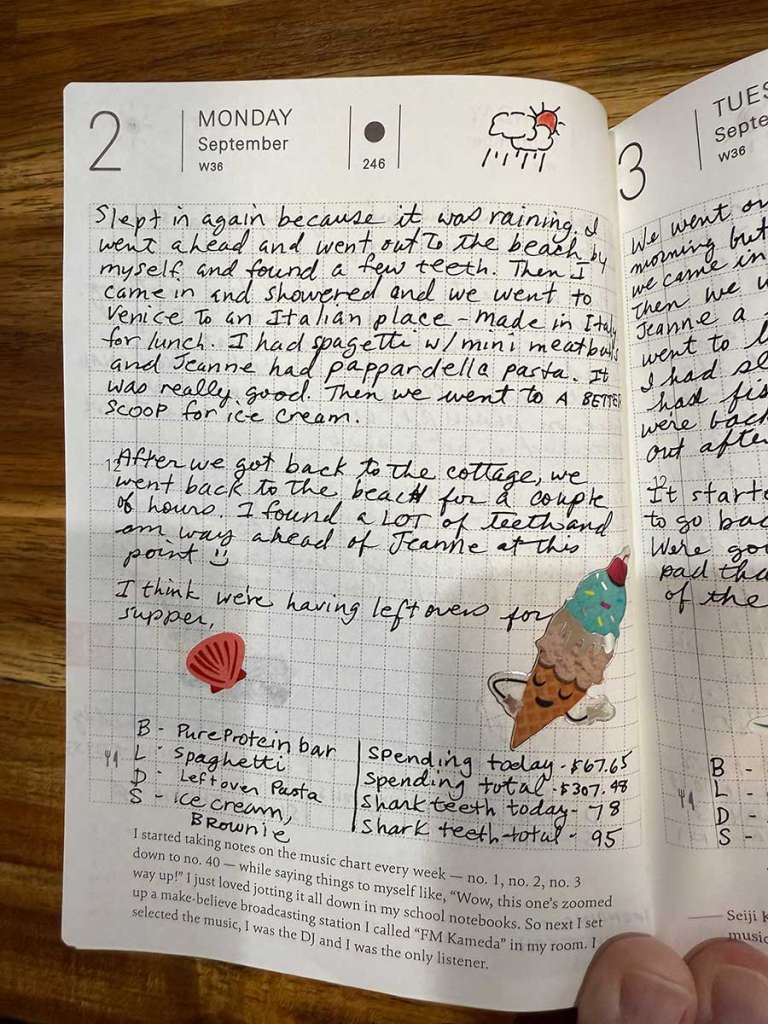 2
MONDAY
September
W36
246
Slept in again because it was raining. I
went ahead and went out to the beach by
myself and found a few teeth. Then I
came in and showered and we went to
Venice to an Italian place - Made in Italy
for lunch. I had spagetti w/ mini meatballs
and Jeanne had pappardella pasta. It
was really good. Then we went to A BETTER
SCOOP for ice cream.
12
After we got back to the cottage, we
went back to the beach for a couple
of hours. I found a LOT of teeth and
am way ahead of Jeanne at this
point
I think we're having leftovers for
supper.
B - Pure Protein bar
L - Spaghetti
D - Leftover Pasta
S - ice cream,
BROWNIE
Spending today - $67.65
Spending total - $307.48
Shark teeth today - 78
Shark teeth-total - 95
I started taking notes on the music chart every week — no. 1, no. 2, no. 3
down to no. 40 — while saying things to myself like, “Wow, this one’s zoomed
way up!” I just loved jotting it all down in my school notebooks. So next I set
up a make-believe broadcasting station I called “FM Kameda” in my room. I
selected the music, I was the DJ and I was the only listener.
3
TUES
Septe
W36
We went
morning but
we came in
Then we
Jeanne a
went to
I had
had
were back
out after
12
It starte
to go bac
Were
pad tha
of the
B -
L -
D -
S -
Seiji
music